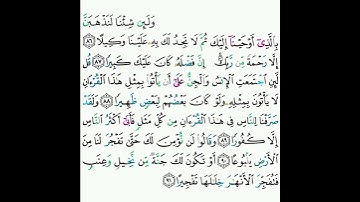 وَلَئِن شِئْنَا لَنَذْهَبَنَّ
بِالَّذِىٓ أَوْحَيْنَآ إِلَيْكَ ثُمَّ لَا تَجِدُ لَكَ بِهِۦ عَلَيْنَا وَكِيلًا ﴿٨٦﴾
إِلَّا رَحْمَةً مِّن رَّبِّكَ ۚ إِنَّ فَضْلَهُۥ كَانَ عَلَيْكَ كَبِيرًا ﴿٨٧﴾ قُل
لَّئِنِ ٱجْتَمَعَتِ ٱلْإِنسُ وَٱلْجِنُّ عَلَىٰٓ أَن يَأْتُوا۟ بِمِثْلِ هَٰذَا ٱلْقُرْءَانِ
لَا يَأْتُونَ بِمِثْلِهِۦ وَلَوْ كَانَ بَعْضُهُمْ لِبَعْضٍ ظَهِيرًا ﴿٨٨﴾ وَلَقَدْ
صَرَّفْنَا لِلنَّاسِ فِى هَٰذَا ٱلْقُرْءَانِ مِن كُلِّ مَثَلٍ فَأَبَىٰٓ أَكْثَرُ ٱلنَّاسِ
إِلَّا كُفُورًا ﴿٨٩﴾ وَقَالُوا۟ لَن نُّؤْمِنَ لَكَ حَتَّىٰ تَفْجُرَ لَنَا مِنَ
ٱلْأَرْضِ يَنۢبُوعًا ﴿٩٠﴾ أَوْ تَكُونَ لَكَ جَنَّةٌ مِّن نَّخِيلٍ وَعِنَبٍ
فَتُفَجِّرَ ٱلْأَنْهَٰرَ خِلَٰلَهَا تَفْجِيرًا ﴿٩١﴾